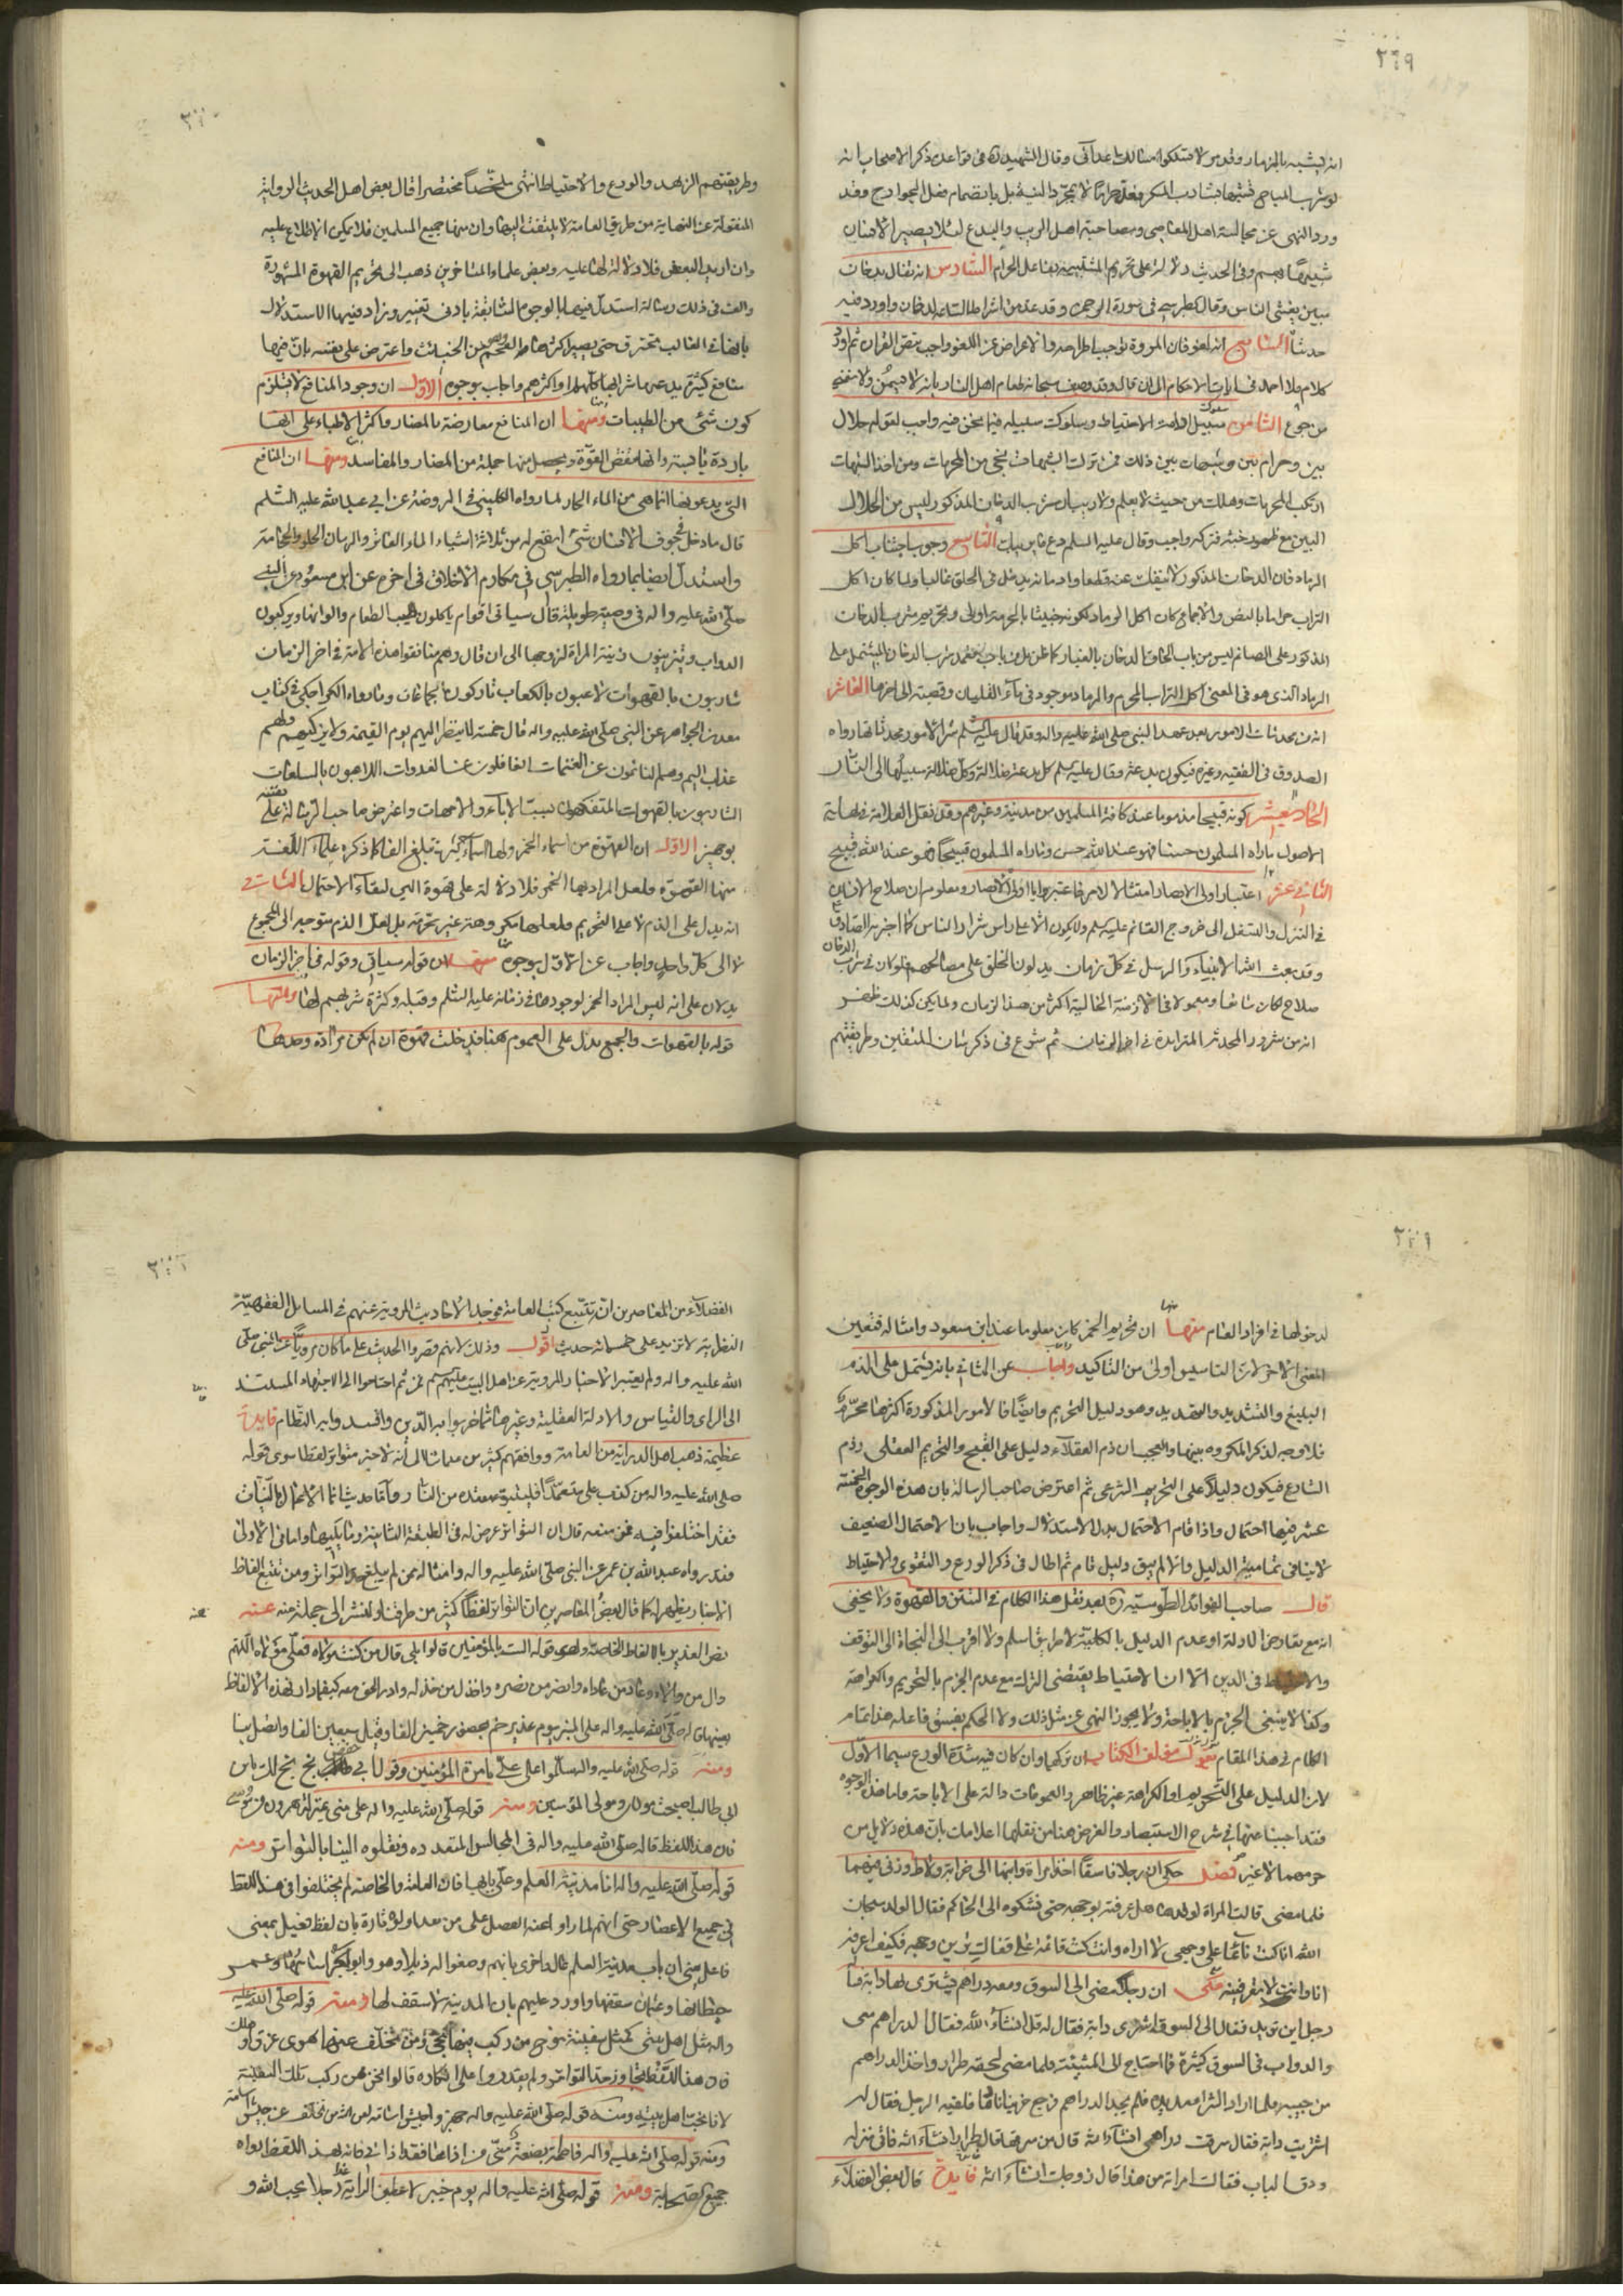 ٣٦٩
انه يشبه بالنهار وقد مر لا تسلكوا مسالك اعدائى وقال الشهيد ره فى قواعده ذكر الاصحاب انه
لو شرب المباح تشبها بشارب المسكر فعل حراما لا بمجرد النية بل بانضمام فعل الجوارح وقد
ورد النهى عن مجالسة اهل المعاصى ومصاحبة اهل الريب والبدع لئلا يصير الانسان
شبيها بهم وفى الحديث دلالة على تحريم التشبيه بفاعل الحرام السادس انه تعالى بدخان
مبين يغشى الناس وقال الطبرسى فى سورة الرحمن وقد عد من اشراط الساعة الدخان واورد فيه
حديثا السابع انه لغو فان المروة توجب اطراحه والاعراض عن اللغو واجب بنص القران ثم اورد
كلام ملا احمد فى ايات الاحكام الى ان قال وقد وصف سبحانه طعام اهل النار بانه لا يسمن ولا يغنى
من جوع الثامن سبيل الامة الاحتياط وسلوك سبيله فيما نحن فيه واجب لقوله حلال
بين وحرام بين وشبهات بين ذلك فمن ترك الشبهات نجى من المحرمات ومن اخذ الشبهات
ارتكب المحرمات وهلك من حيث لا يعلم ولا ريب ان شرب الدخان المذكور ليس من الحلال
البين مع ظهور خبثه فتركه واجب وقال عليه السلم دع ما يريبك التاسع وجوب اجتناب اكل
الرماد فان الدخان المذكور لا ينفك عنه قطعا وادمانه يدخل فى الحلق غالبا ولما كان اكل
التراب حراما بالنص والاجماع كان اكل الرماد لكونه خبيثا بالحرمة اولى وتحريم شرب الدخان
المذكور على الصائم ليس من باب الحاق الدخان بالغبار كما ظن بل من باب تعمد شرب الدخان المشتمل على
الرماد الذى هو فى المعنى اكل التراب المحرم والرماد موجود فى ماء القليان وقصبته الى اخرها العاشر
انه من محدثات الامور بعد عهد النبى صلى الله عليه واله وقد قال عليه السلم شر الامور محدثاتها رواه
الصدوق فى الفقيه وغيره فيكون بدعة وقال عليه السلم كل بدعة ضلالة وكل ضلالة سبيلها الى النار
الحادى عشر كونه قبيحا مذموما عند كافة المسلمين من مدينة وغيرهم وقد نقل العلامة فى نهاية
الاصول ما راه المسلمون حسنا فهو عند الله حسن وما راه المسلمون قبيحا فهو عند الله قبيح
الثانى عشر اعتبار اولى الابصار امتثالا لامر فاعتبروا يا اولى الابصار ومعلوم ان صلاح الانسان
فى التنزل والتسفل الى خروج القائم عليه السلم ولا يكون الا على راس شرار الناس كما اخبر به الصادق ع
وقد بعث الله الانبياء والرسل فى كل زمان يدلون الخلق على مصالحهم فلو كان فى شرب الدخان
صلاح لكان شائعا ومعمولا فى الازمنة الخالية اكثر من هذا الزمان ولما يكن كذلك ظهر
انه من شرور المحدثة المتزايدة فى اخر الزمان ثم شرع فى ذكر شان المتقين وطريقتهم
وطريقتهم الزهد والورع والاحتياط انتهى ملخصا مختصرا قال بعض اهل الحديث الرواية
المنقولة عن النهاية من طريق العامة لا يلتفت اليها وان منها جميع المسلمين فلا يمكن الاطلاع عليه
وان اريد البعض فلا دلالة لها عليه وبعض علماء المتاخرين ذهب الى تحريم القهوة المشهورة
والف فى ذلك رسالة استدل فيها بالوجوه السابقة بادنى تغيير وزاد فيها الاستدلال
بانها فى الغالب تحترق حتى يصير اكثرها كالفحم وهو من الخبائث واعترض على نفسه بان فيها
منافع كثيرة يدعيها شرابها كلهم او اكثرهم واجاب بوجوه الاول ان وجود المنافع لا يستلزم
كون شئ من الطيبات ومنها ان المنافع معارضة بالمضار واكثر الاطباء على انها
باردة يابسة وانها تنقض القوة ويحصل منها جملة من المضار والمفاسد ومنها ان المنافع
التى يدعونها انما هى من الماء الحار لما رواه الكلينى فى الروضة عن ابى عبد الله عليه السلم
قال ما دخل جوف الانسان شئ انفع له من ثلاثة اشياء الماء الفاتر والرمان الحلو والحجامة
واستدل ايضا بما رواه الطبرسى فى مكارم الاخلاق فى اخره عن ابن مسعود عن النبى
صلى الله عليه واله فى وصية طويلة قال سياتى اقوام ياكلون طيب الطعام والوانها ويركبون
الدواب ويتزينون بزينة المراة لزوجها الى ان قال وهم منافقوا هذه الامة فى اخر الزمان
شاربون بالقهوات لاعبون بالكعاب تاركون الجماعات وما رواه الكراجكى فى كتاب
معدن الجواهر عن النبى صلى الله عليه واله قال خمسة لا ينظر اليهم يوم القيمة ولا يزكيهم ولهم
عذاب اليم وهم النائمون عن العتمات الغافلون عن الغدوات اللاعبون بالسامات
الشاربون بالقهوات المتفكهون بسب الاباء والامهات واعترض صاحب الرسالة على نفسه
بوجهين الاول ان القهوة من اسماء الخمر ولها اسماء كثيرة تبلغ الفا كما ذكره علماء اللغة
منها القهوة ولعل المراد بها الخمر فلا دلالة على قهوة البن لبقاء الاحتمال الثانى
انه يدل على الذم لا على التحريم فلعلها مكروهة غير محرمة بل لعل الذم متوجه الى المجموع
لا الى كل واحد واجاب عن الاول بوجوه منها ان قوله سياتى وقوله فى اخر الزمان
يدلان على انه ليس المراد الخمر لوجودها فى زمانه عليه السلم وقبله وكثرة شربهم لها ومنها
قوله بالقهوات والجمع يدل على العموم فهنا قد دخلت قهوة ان لم تكن مرادة وحدها
لدخولها فى افراد العام ومنها ان تحريم الخمر كان معلوما عند ابن مسعود وامثاله فتعين
المعنى الاخر لان التاسيس اولى من التاكيد واجاب عن الثانى بانه يشتمل على الذم
البليغ والتشديد والتهديد وهو دليل التحريم وايضا فالامور المذكورة اكثرها محرم
فلا وجه لذكر المكروه بينها والعجب ان ذم العقلاء دليل على القبح والتحريم العقلى وذم
الشارع فيكون دليلا على التحريم الشرعى ثم اعترض صاحب الرسالة بان هذه الوجوه الخمسة
عشر فيها احتمال واذا قام الاحتمال بطل الاستدلال واجاب بان الاحتمال الضعيف
لا ينافى تمامية الدليل والا لم يبق دليل تام ثم اطال فى ذكر الورع والتقوى والاحتياط
قال صاحب الفوائد الطوسية ره بعد نقل هذا الكلام فى التتن والقهوة ولا يخفى
انه مع تعارض الادلة او عدم الدليل بالكلية لا طريق اسلم ولا اقرب الى النجاة الى التوقف
والاحتياط فى الدين الا ان الاحتياط يقتضى الترك مع عدم الجزم بالتحريم والكراهة
وكذا لا ينبغى الجزم بالاباحة ولا يجوز النهى عن مثل ذلك ولا الحكم بفسق فاعله هذا تمام
الكلام فى هذا المقام يقول مؤلف الكتاب ان تركها وان كان فيه شدة الورع سيما الاول
لان الدليل على التحريم او الكراهة غير ظاهر والعمومات دالة على الاباحة واما هذه الوجوه
فقد اجبنا عنها فى شرح الاستبصار والغرض هنا من نقلها اعلامك بان هذه دلايل من
حرمهما لا غير فصل حكى ان رجلا فاسقا اخذ امراة وابنها الى خرابة ولاط وزنى فيهما
فلما مضى قالت المراة لولدها هل عرفته بوجهه حتى نشكوه الى الحاكم فقال الولد سبحان
الله انا كنت نائما على وجهى لا اراه وانت كنت قائمة على قفاك ترين وجهه فكيف اعرفه
انا وانت لا تعرفينه حكى ان رجلا مضى الى السوق ومعه دراهم يشترى بها دابة فلقيه
رجل اين تريد فقال الى السوق اشترى دابة فقال له قل انشاء الله فقال الدراهم معى
والدواب فى السوق كثيرة فما احتاج الى المشيئة فلما مضى لحقه طرار واخذ الدراهم
من جيبه فلما اراد الشراء مد يده فلم يجد الدراهم فرجع حزينا نادما فلقيه الرجل فقال له
اشتريت دابة فقال سرقت دراهمى انشاء الله قال من سرقها قال الطرار انشاء الله فاتى منزله
ودق الباب فقالت امراته من هذا قال زوجك انشاء الله فايدة قال بعض الفضلاء
الفضلاء من المعاصرين ان تتبع كتب العامة فى جد الاحاديث المروية عنهم فى المسايل الفقهية
النظرية لا تزيد على خمسمائة حديث اقول وذلك لانهم قصروا الحديث على ما كان مرويا عن النبى صلى
الله عليه واله ولم يعتبر الاخبار المروية عن اهل البيت عليهم السلم فمن ثم احتاجوا الى الاجتهاد المستند
الى الراى والقياس والادلة العقلية وغيرها مما خربوا به الدين وافسدوا به النظام فايدة
عظيمة ذهب اهل الدراية من العامة ووافقهم كثير من مشائخنا الى انه لا خبر متواتر لفظا سوى قوله
صلى الله عليه واله من كذب على متعمدا فليتبوء مقعده من النار واما حديث انما الاعمال بالنيات
فقد اختلفوا فيه فمن منعه قال ان التواتر عرض له فى الطبقة الثانية وما يليها واما فى الاولى
فقد رواه عبد الله بن عمر عن النبى صلى الله عليه واله وامثاله ممن لم يبلغ حد التواتر ومن تتبع الفاظ
الاخبار يظهر له كما قال بعض المعاصرين ان التواتر لفظا كثير من طرقنا ولنشر الى جملة منه عنه
نص الغدير بالالفاظ الخاصة وهى قوله الست بالمؤمنين قالوا بلى قال من كنت مولاه فعلى مولاه اللهم
وال من والاه وعاد من عاداه وانصر من نصره واخذل من خذله وادر الحق معه كيفما دار فهذه الالفاظ
بعينها قاله صلى الله عليه واله على المنبر يوم غدير خم بمحضر خمسين الفا وقيل سبعين الفا واتصل بنا
ومنه قوله صلى الله عليه واله سلموا على على بامرة المؤمنين وقول ابى حفص بخ بخ لك يا بن
ابى طالب اصبحت مولاى ومولى المؤمنين ومنه قوله صلى الله عليه واله على منى بمنزلة هرون من موسى
فان هذا اللفظ قاله صلى الله عليه واله فى المجالس المتعدده ونقلوه الينا بالتواتر ومنه
قوله صلى الله عليه واله انا مدينة العلم وعلى بابها فان العامة والخاصة لم يختلفوا فى هذا اللفظ
فى جميع الاعصار حتى انهم لما راوا عنه الفصل على من عداه اولوه تارة بان لفظ فعيل بمعنى
فاعل يعنى ان باب مدينة العلم عال واخرى بانهم وضعوا له ذيلا وهو وابو بكر اساسها وعمر
حيطانها وعثمان سقفها واورد عليهم بان المدينة لا سقف لها ومنه قوله صلى الله عليه
واله مثل اهل بيتى كمثل سفينة نوح من ركب فيها نجى ومن تخلف عنها هوى غرق او هلك
فان هذا اللفظ تجاوز حد التواتر ولم يقدروا على انكاره قالوا نحن ممن ركب تلك السفينة
لانا نحب اهل بيته ومنه قوله صلى الله عليه واله جهزوا جيش اسامة لعن الله من تخلف عن جيش اسامة
ومنه قوله صلى الله عليه واله فاطمة بضعة منى من اذاها فقد اذانى فانه بهذا اللفظ رواه
جميع الصحابة ومنه قوله صلى الله عليه واله يوم خيبر لاعطين الراية غدا رجلا يحب الله و